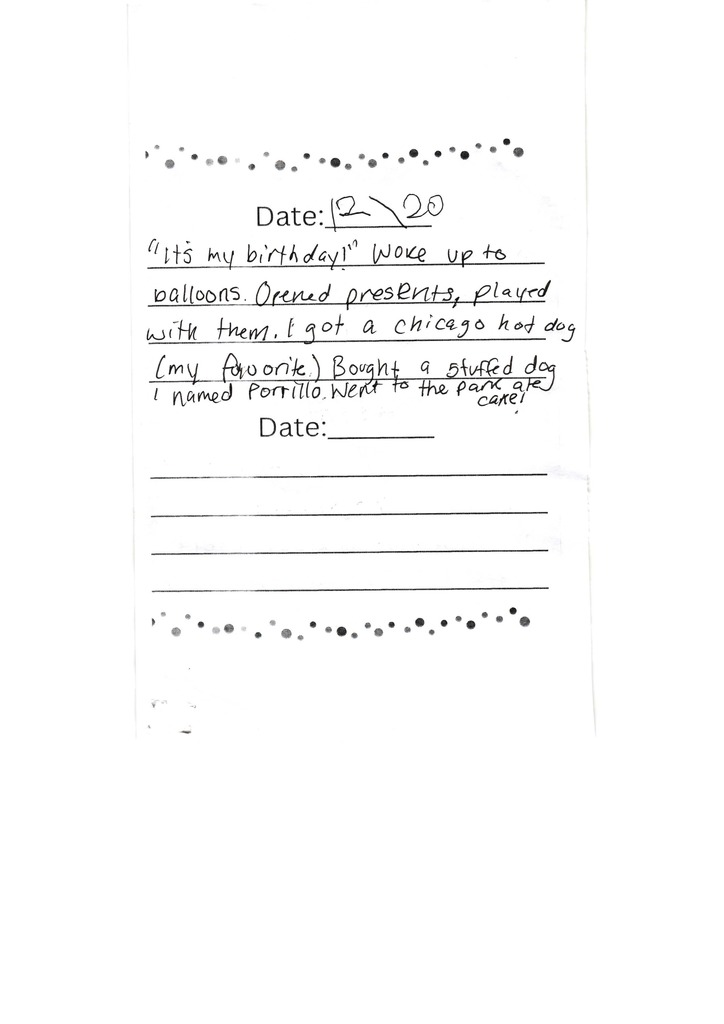 Date: 12\20
"It's my birthday!" Woke up to
balloons. Opened presents, played
with them. I got a chicago hot dog
(my favorite.) Bought a stuffed dog
I named Porrillo. Went to the park ate
cake!
Date: